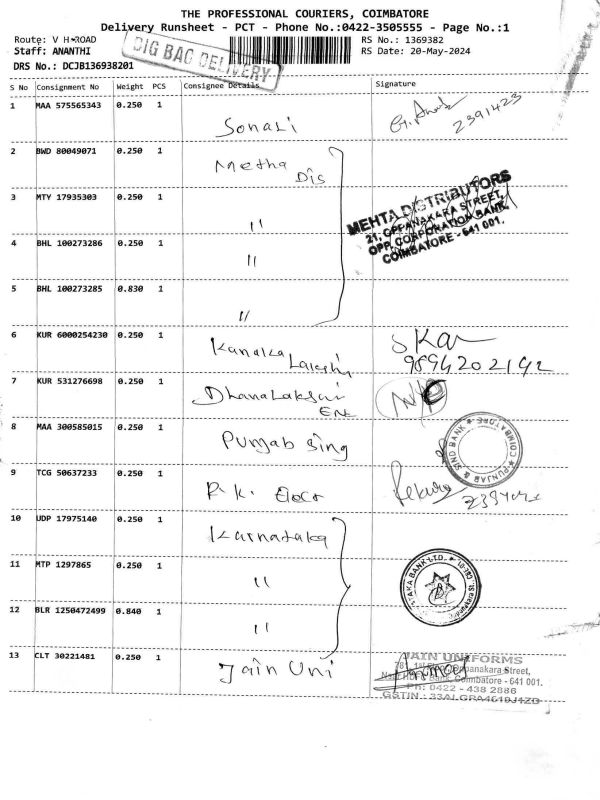 THE PROFESSIONAL COURIERS, COIMBATORE
Delivery Runsheet - PCT - Phone No.:0422-3505555 - Page No.:1
Route: V H ROAD
RS No.: 1369382
Staff: ANANTHI
RS Date: 20-May-2024
BIG BAG DELIVERY
DRS No.: DCJB136938201
S No Consignment No Weight PCS Consignee Details Signature
1 MAA 575565343 0.250 1
Sonali 2391423
2 BWD 80049071 0.250 1 Metha
Dis
3 MTY 17935303 0.250 1
"
MEHTA DISTRIBUTORS
21, OPPANAKARA STREET,
OPP. CORPORATION BANK,
COIMBATORE - 641 001.
4 BHL 100273286 0.250 1
"
5 BHL 100273285 0.830 1
"
6 KUR 6000254230 0.250 1 Kanaka Lakshi
9894202142
7 KUR 531276698 0.250 1 Dhanalaksmi
Ent
8 MAA 300585015 0.250 1
Punjab Sing
PUNJAB & SIND BANK COIMBATORE
9 TCG 50637233 0.250 1
R.K. Elecr
10 UDP 17975140 0.250 1
Karnataka
11 MTP 1297865 0.250 1
"
TAKA BANK LTD.
12 BLR 1250472499 0.840 1
"
13 CLT 30221481 0.250 1
Jain Uni
JAIN UNIFORMS
Oppanakara Street,
Coimbatore - 641 001.
Ph: 0422 - 438 2886